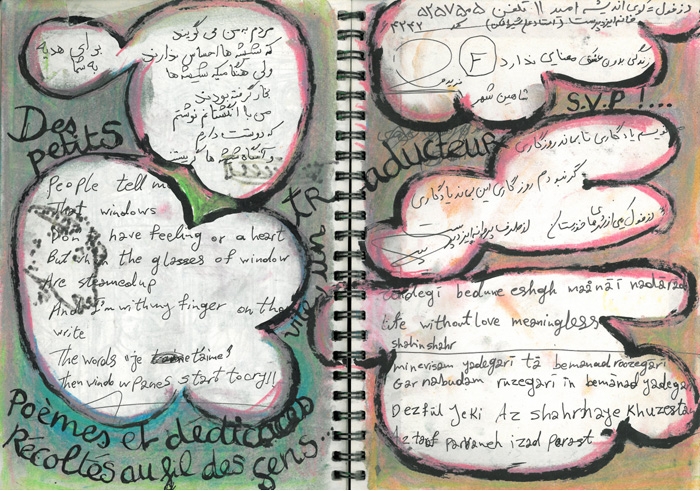 برای هدیه
به شما
مردم بمن می گویند
که شیشه ها احساس ندارند
ولی هنگامیکه شیشه ها
بخار گرفته بودند
من با انگشتانم نوشتم
که دوستت دارم
و آنگاه شیشه ها گریستند
Des
petits
People tell m
That windows
Don't have feeling or a heart
But when the glasses of window
Are steamed up
And I'm with my finger on the
write
The words "Je t'aime"
then window panes start to cry!!
Poèmes et dédicaces
Récoltés au fil des gens...
vite un traducteur
S.V.P !...
دزفول =
امید 11 تلفن 5257505
4242
زندگی بدون عشق معنایی ندارد
F
شاهین شهر
مینویسم یادگاری تا بماند روزگاری
گر نبودم روزگاری این بماند یادگاری
از طرف پروانه ایزدپرست
دزفول یکی از شهرهای خوزستان
zendegi bedune eshgh maānāi nadarad
Life without love meaningless
shahin shahr
minevisam yadegari tā bemanad roozegari
Gar nabudam ruzegari in bemanad yadegari
Dezfūl Jeki Az shahrhaye Khuzestan
Az taraf parvaneh izad parast.